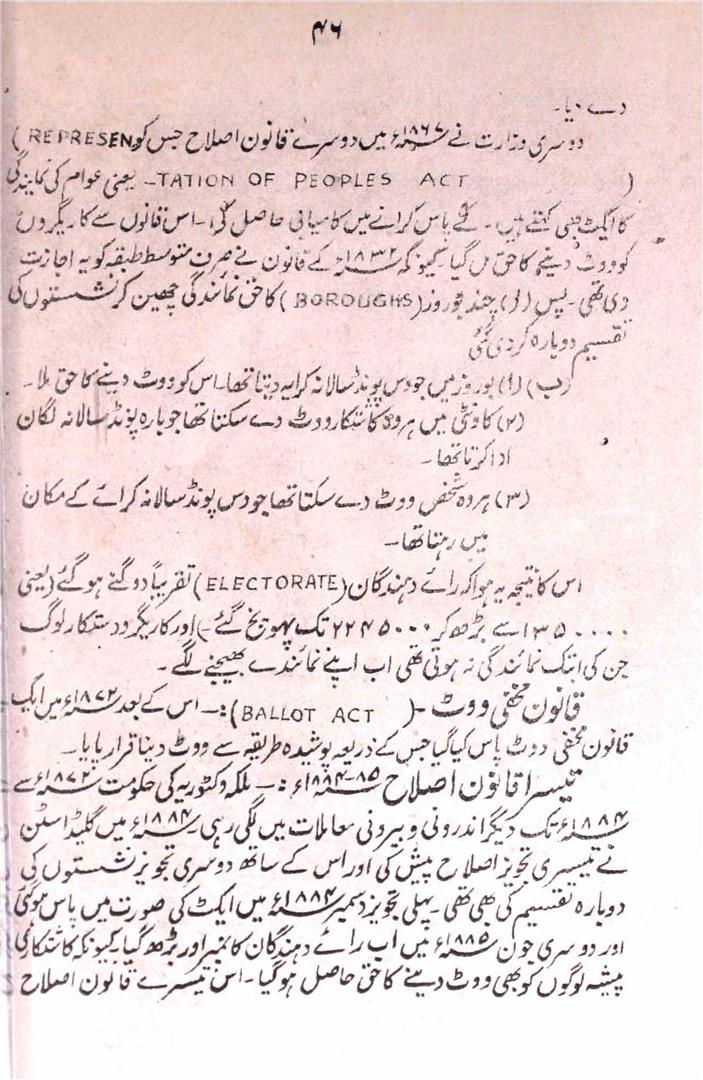 ۴۶
دے دیا۔
دوسری وزارت نے ۱۸۶۷ء میں دوسرے قانون اصلاح جس کو (REPRESEN
TATION OF PEOPLES ACT) یعنی عوام کی نمایندگی
کا ایکٹ بھی کہتے ہیں۔ کے پاس کرانے میں کامیابی حاصل کی۔ اس قانون سے کاریگروں
کو ووٹ دینے کا حق مل گیا۔ کیونکہ ۱۸۳۲ء کے قانون نے صرف متوسط طبقہ کو یہ اجازت
دی تھی۔ پس (ا) چند بوروز (BOROUGHS) کا حق نمائندگی چھین کر نشستوں کی
تقسیم دوبارہ کر دی گئی
(ب) (۱) بوروز میں جو دس پونڈ سالانہ کرایہ دیتا تھا۔ اس کو ووٹ دینے کا حق ملا۔
(۲) کاونٹی میں ہر وہ کاشتکار ووٹ دے سکتا تھا جو بارہ پونڈ سالانہ لگان
ادا کرتا تھا۔
(۳) ہر وہ شخص ووٹ دے سکتا تھا جو دس پونڈ سالانہ کرائے کے مکان
میں رہتا تھا۔
اس کا نتیجہ یہ ہوا کہ رائے دہندگان (ELECTORATE) تقریباً دوگنے ہو گئے (یعنی
۱۳۵۰۰۰۰ سے بڑھ کر ۲۲۴۵۰۰۰ تک پہونچ گئے) اور کاریگر و دستکار لوگ
جن کی ابتک نمائندگی نہ ہوتی تھی اب اپنے نمائندے بھیجنے لگے۔
قانون مخفی ووٹ۔ (BALLOT ACT):۔ اس کے بعد ۱۸۷۲ء میں ایک
قانون مخفی ووٹ پاس کیا گیا جس کے ذریعہ پوشیدہ طریقہ سے ووٹ دینا قرار پایا۔
تیسرا قانون اصلاح ۸۵-۱۸۸۴ء:۔ ملکہ وکٹوریہ کی حکومت ۱۸۷۲ء سے
۱۸۸۴ء تک دیگر اندرونی و بیرونی معاملات میں لگی رہی۔ ۱۸۸۴ء میں گلیڈاسٹن
نے تیسری تجویز اصلاح پیش کی اور اس کے ساتھ دوسری تجویز نشستوں کی
دوبارہ تقسیم کی بھی تھی پہلی تجویز دسمبر ۱۸۸۴ء میں ایکٹ کی صورت میں پاس ہو گئی
اور دوسری جون ۱۸۸۵ء میں اب رائے دہندگان کا نمبر اور بڑھ گیا۔ کیونکہ کاشتکاری
پیشہ لوگوں کو بھی ووٹ دینے کا حق حاصل ہو گیا۔ اس تیسرے قانون اصلاح